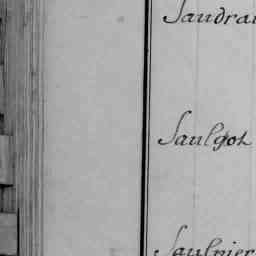 Saudrai
Saulgot
Saulnier